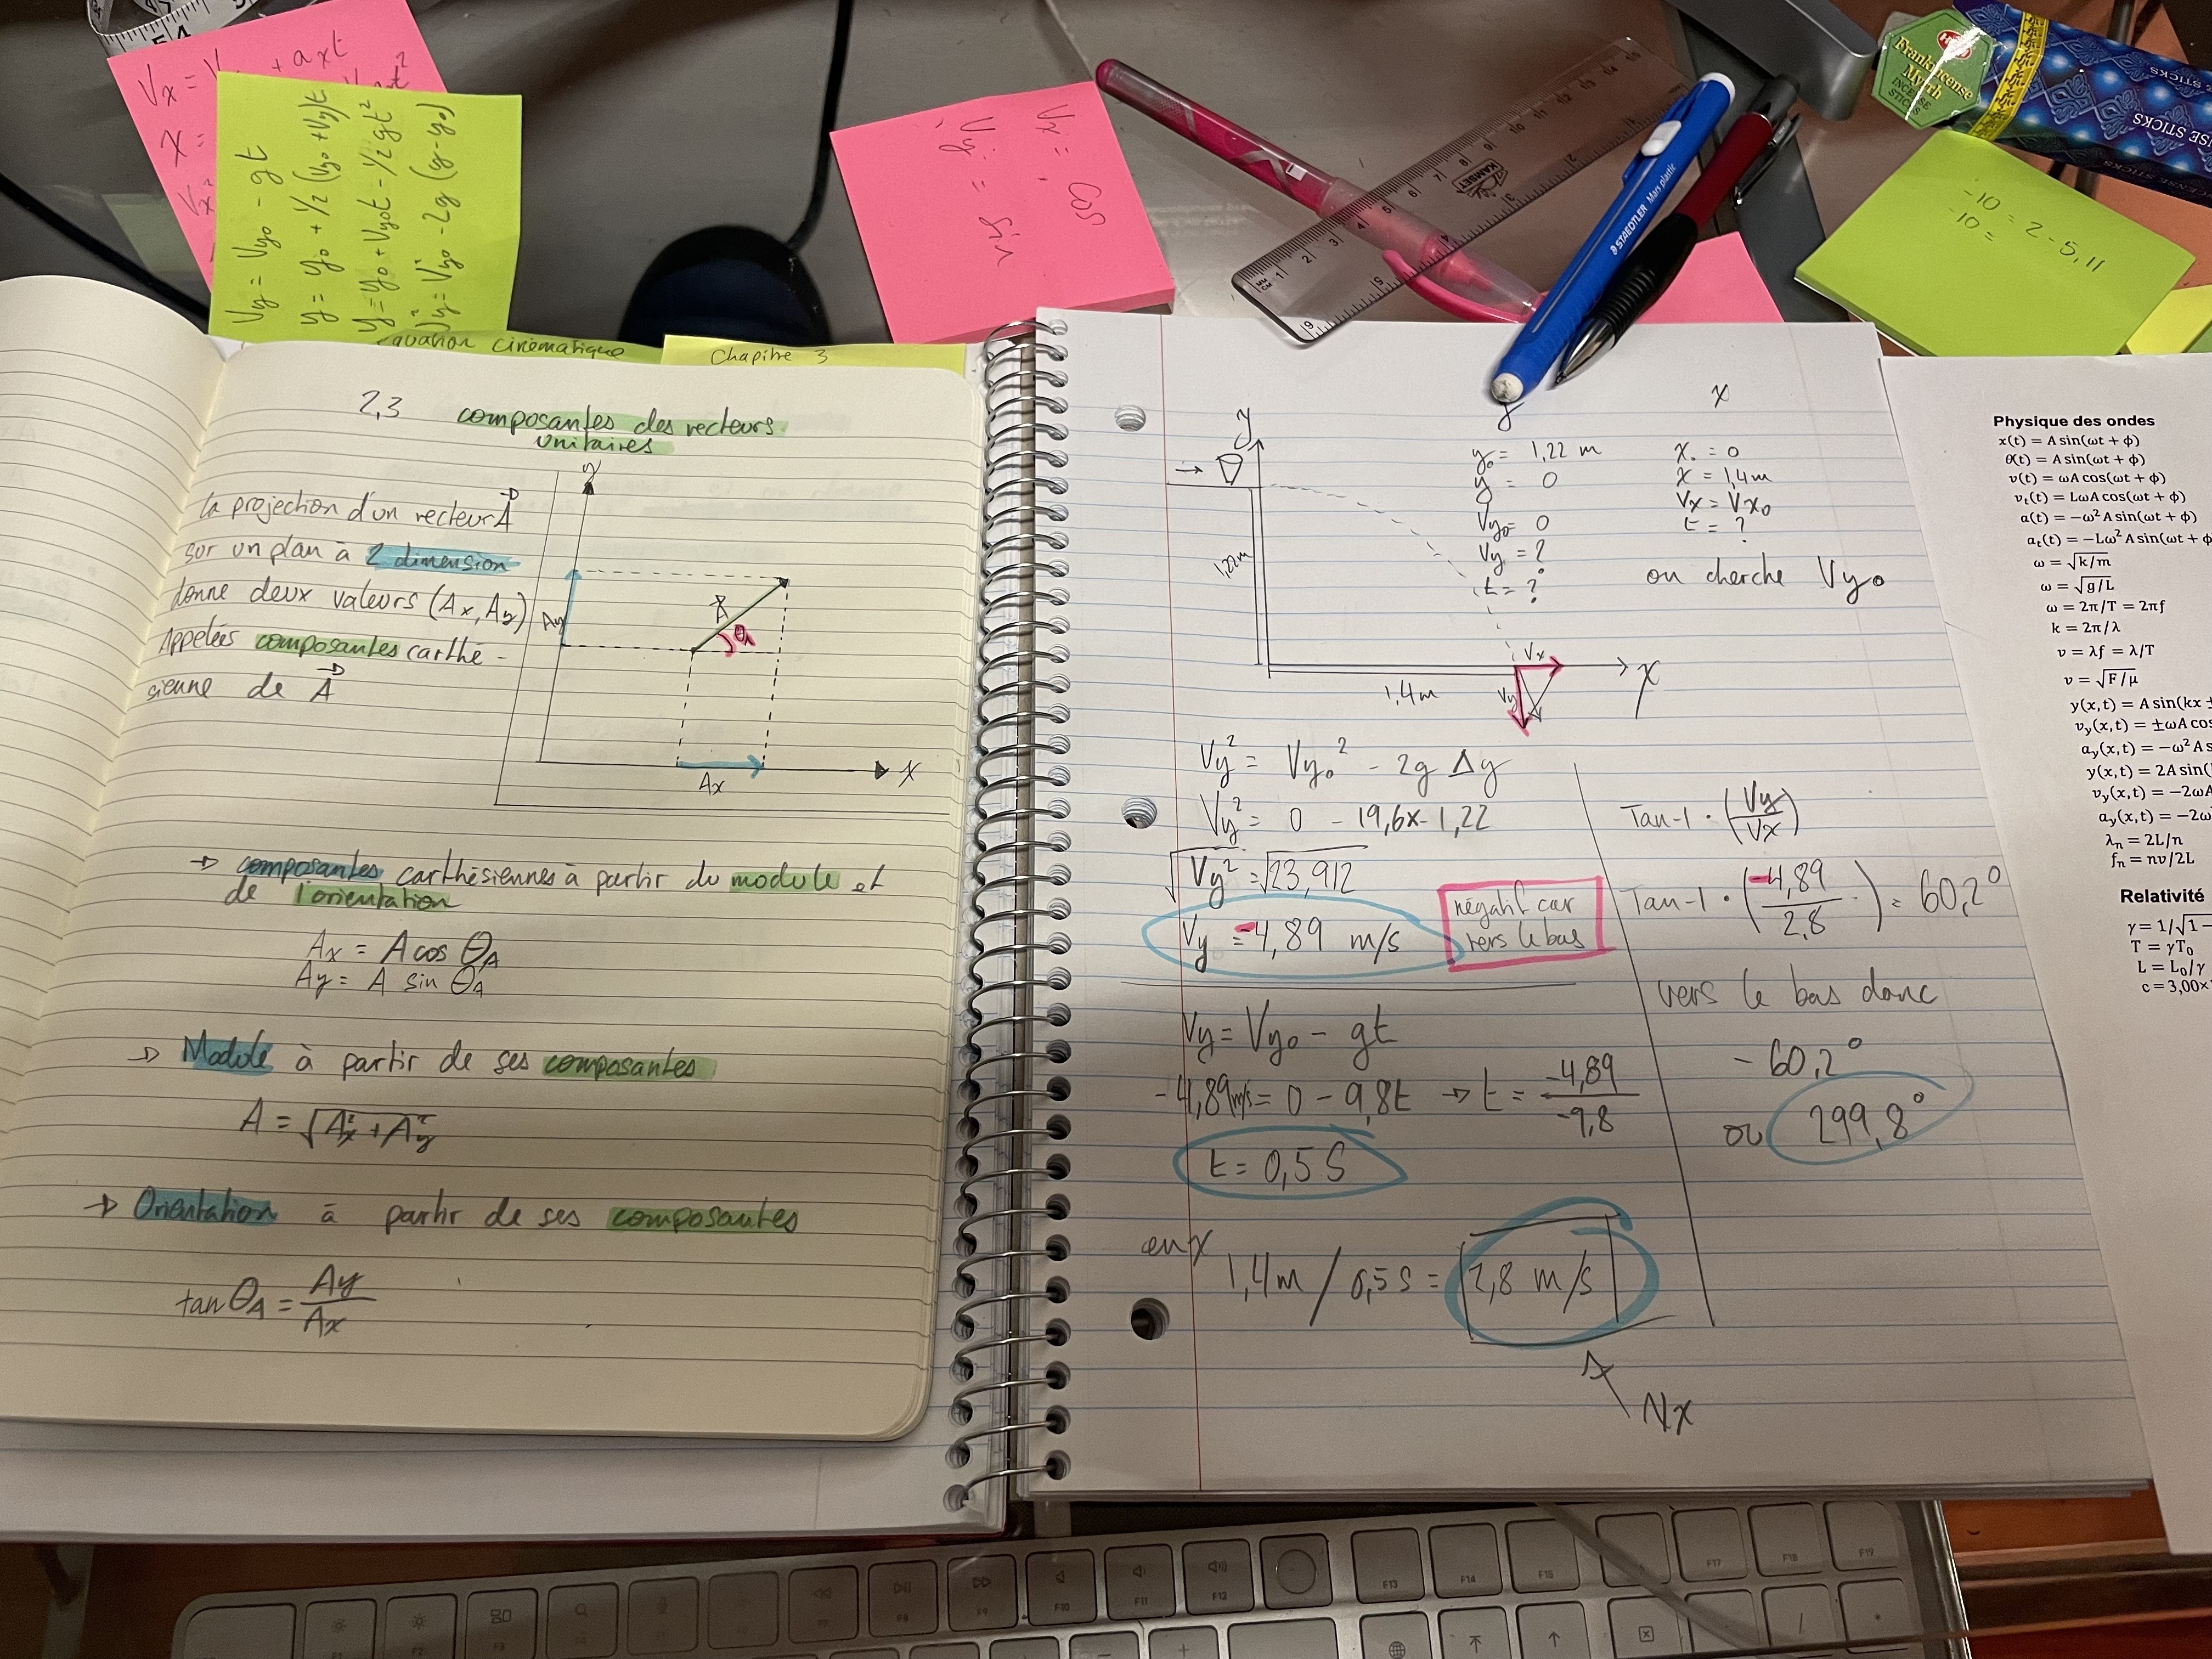 Vx = V + axt
X =
Vx²
Vy = Vyo - gt
y = yo + 1/2 (yo + Vy)t
y = yo + Vyot - 1/2 gt²
Vy² = Vyo² - 2g (y - yo)
Vx = cos
Vy = sin
-10 = 2 - 5,11
-10 =
Frankincense
Myrrh
INCENSE
STICKS
STICKS
SE STICKS
ENSE STICKS
STAEDTLER Mars plastic
KAMSET
MM
CM
cinématique
Chapitre 3
2,3 composantes des vecteurs
unitaires
la projection d'un vecteur A
sur un plan à 2 dimension
donne deux valeurs (Ax, Ay)
Appelées composantes carthé-
sienne de A
y
Ay
A
θA
Ax
X
→ composantes carthésiennes à partir du module et
de l'orientation
Ax = A cos θA
Ay = A sin θA
→ Module à partir de ses composantes
A = √Ax² + Ay²
→ Orientation à partir de ses composantes
tan θA = Ay/Ax
y
1,22m
1,4m
Vx
Vy
X
y
yo = 1,22 m
y = 0
Vyo = 0
Vy = ?
t = ?
x
Xo = 0
X = 1,4m
Vx = Vxo
t = ?
on cherche Vyo
Vy² = Vyo² - 2g Δy
Vy² = 0 - 19,6x-1,22
√Vy² = √23,912
Vy = -4,89 m/s
négatif car
vers le bas
Vy = Vyo - gt
-4,89m/s = 0 - 9,8t → t = -4,89/-9,8
t = 0,5 S
en x
1,4m / 0,5 S = 2,8 m/s
Vx
Tan-1 · (Vy/Vx)
Tan-1 · (-4,89/2,8) = 60,2°
vers le bas donc
- 60,2°
ou 299,8°
Physique des ondes
x(t) = A sin(ωt + ϕ)
θ(t) = A sin(ωt + ϕ)
v(t) = ωA cos(ωt + ϕ)
vt(t) = LωA cos(ωt + ϕ)
a(t) = −ω²A sin(ωt + ϕ)
at(t) = −Lω²A sin(ωt + ϕ
ω = √k/m
ω = √g/L
ω = 2π/T = 2πf
k = 2π/λ
v = λf = λ/T
v = √F/μ
y(x,t) = A sin(kx ±
vy(x,t) = ±ωA cos
ay(x,t) = −ω²A s
y(x,t) = 2A sin(
vy(x,t) = −2ωA
ay(x,t) = −2ω
λn = 2L/n
fn = nv/2L
Relativité
γ = 1/√1 −
T = γT0
L = L0/γ
c = 3,00×
F7
F8
F9
F10
F11
F12
F13
F14
F15
F17
F18
F19